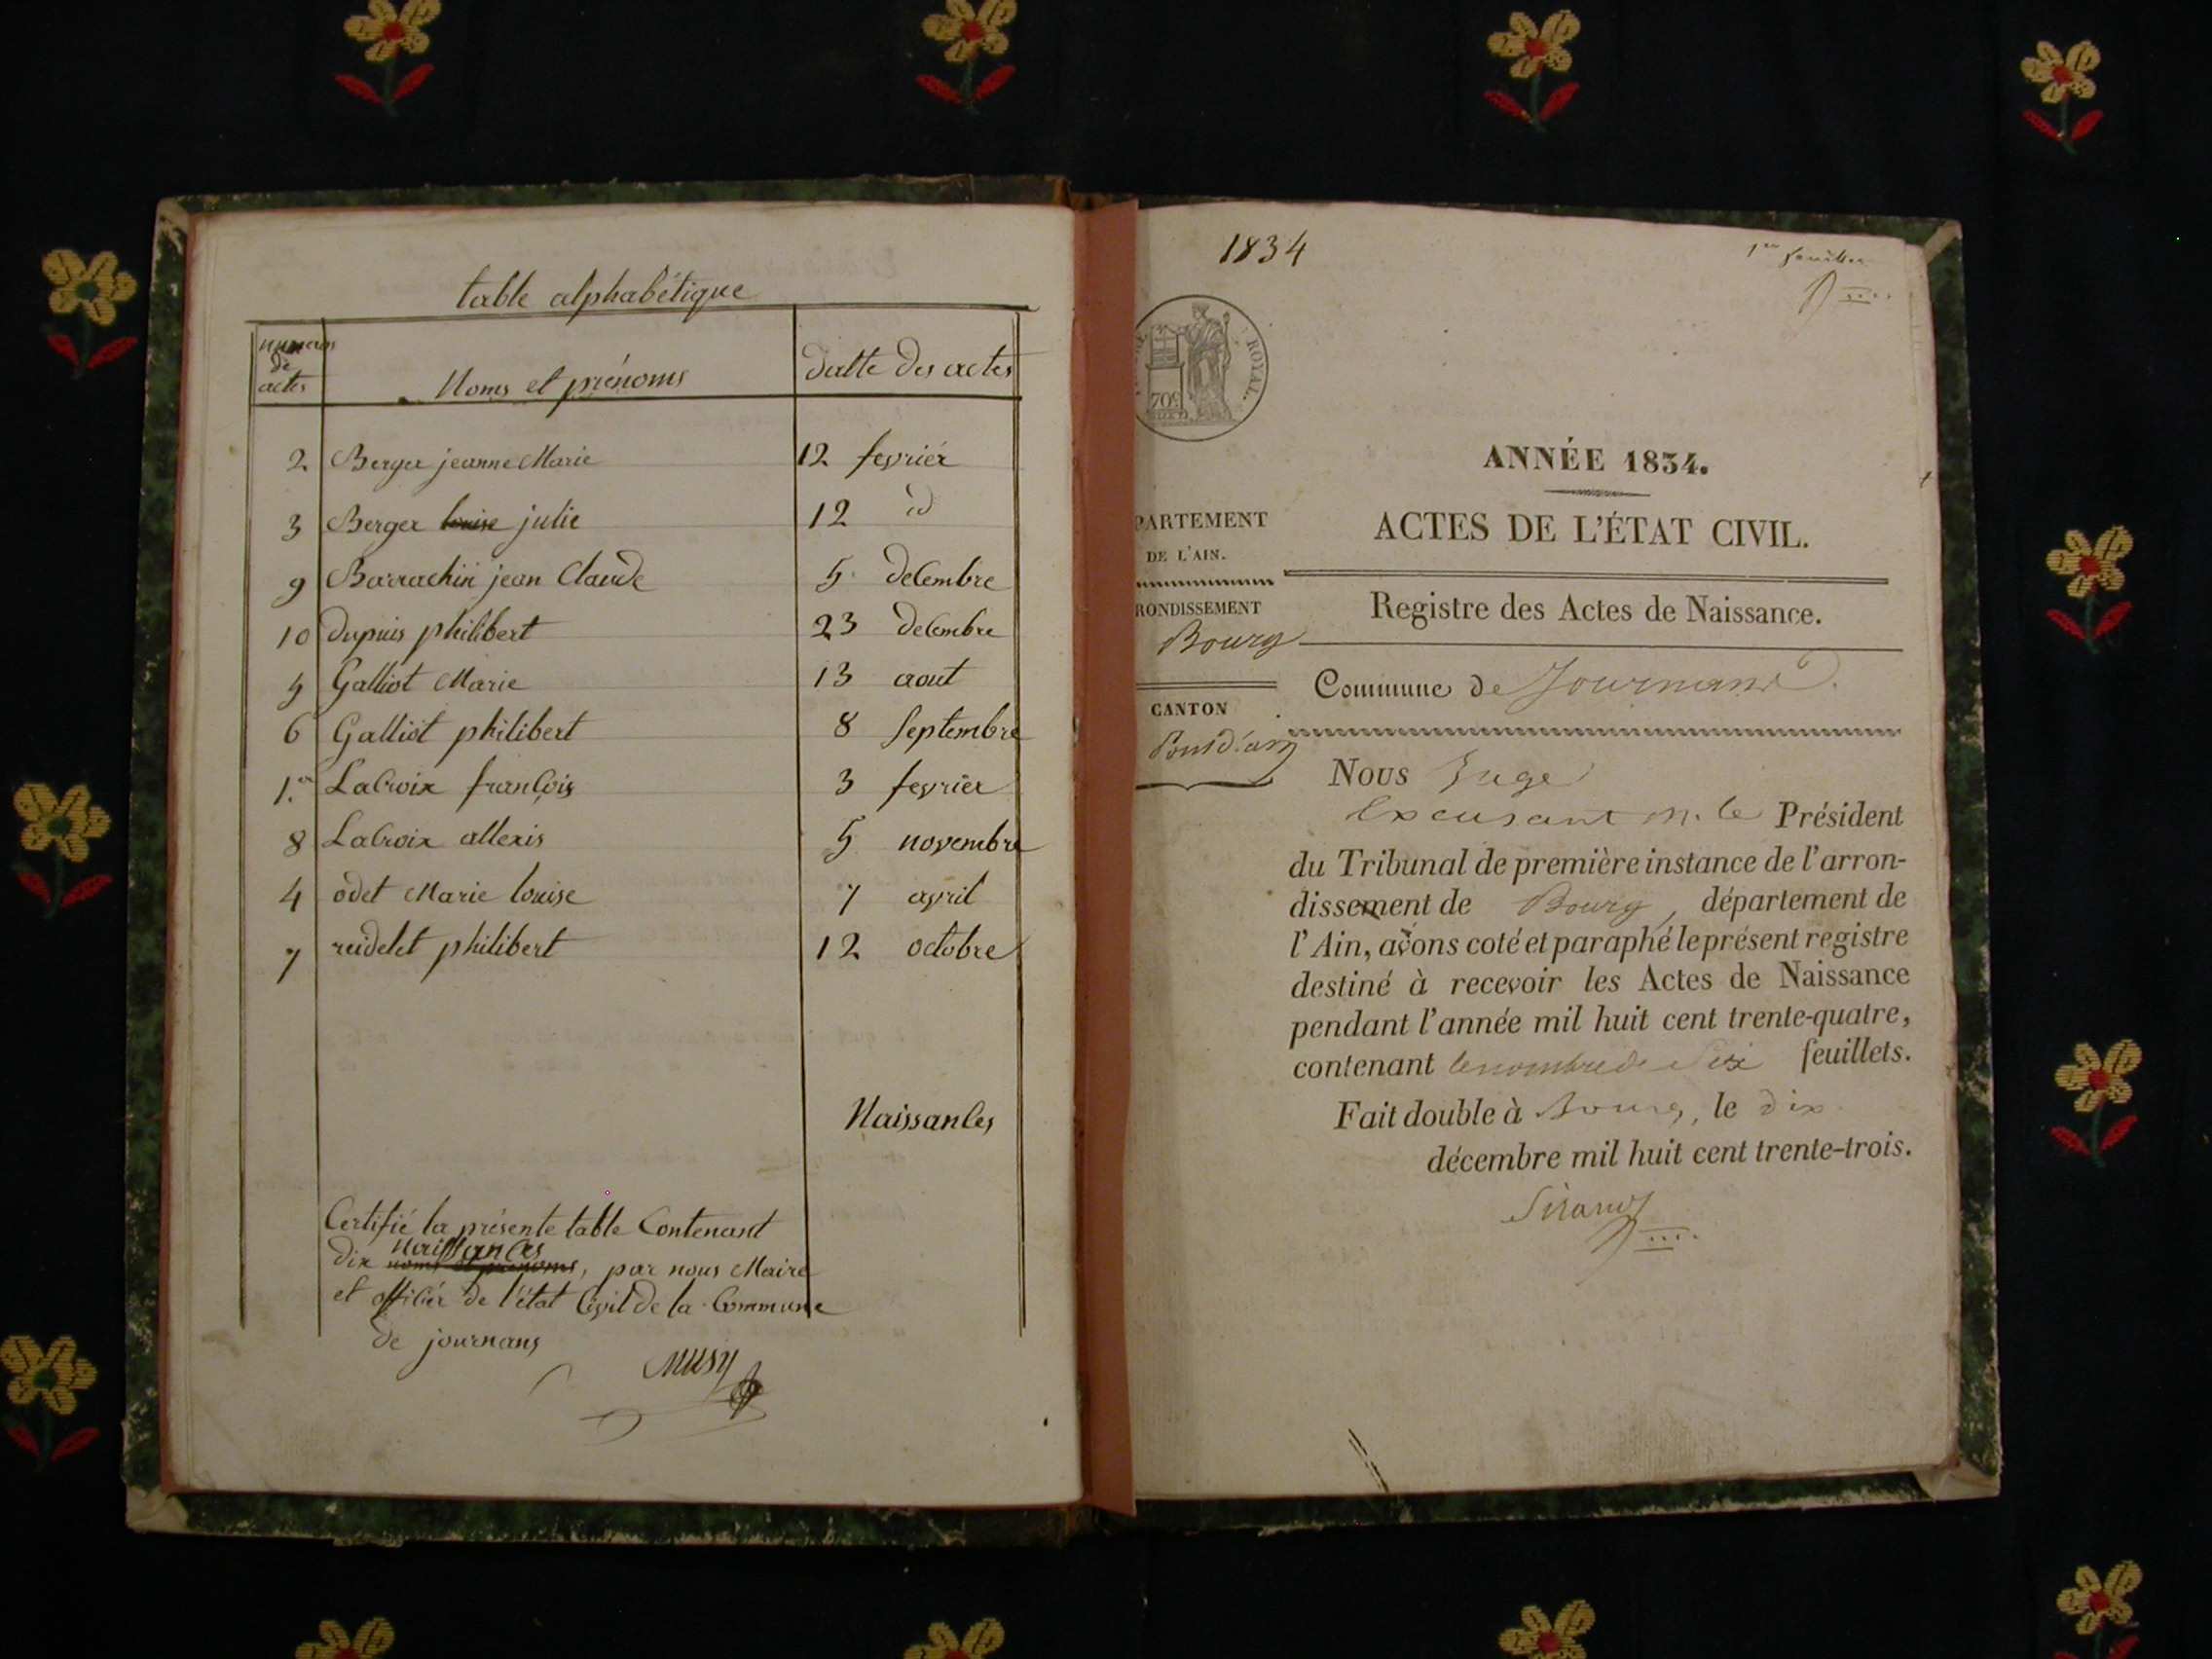 table alphabétique
numeros
de
actes
Noms et prénoms
datte des actes
2 Berger jeanne Marie 12 fevriér
3 Berger louise julie 12 id
9 Barrachin jean Claude 5 decembre
10 dupuis philibert 23 decembre
5 Galliot Marie 13 aout
6 Galliot philibert 8 septembre
1.er Lacroix françois 3 fevrier
8 Lacroix allexis 5 novembre
4 odet Marie louise 7 avril
7 reidelet philibert 12 octobre
Naissances
Certifié la présente table Contenant
Naissances
dix noms et prenoms, par nous Maire
et officiér de l'état Civil de la Commune
de journans
Musy
1834
1er feuillet
ROYAL.
70c
ANNÉE 1834.
ACTES DE L'ÉTAT CIVIL.
PARTEMENT
DE L'AIN.
RONDISSEMENT
Bourg
Registre des Actes de Naissance.
Commune de Journans.
CANTON
Pont d'ain
Nous Juge
Excusant M. le Président
du Tribunal de première instance de l'arron-
dissement de Bourg, département de
l'Ain, avons coté et paraphé le présent registre
destiné à recevoir les Actes de Naissance
pendant l'année mil huit cent trente-quatre,
contenant le nombre de Six feuillets.
Fait double à Bourg, le dix
décembre mil huit cent trente-trois.
Sirand